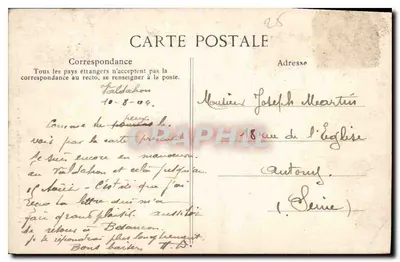 25
CARTE POSTALE
Correspondance
Tous les pays étrangers n'acceptent pas la
correspondance au recto, se renseigner à la poste.
Adresse
Valdahon
10-8-04.
Comme tu peux le
vois par la carte
je suis encore en manœuvre
au Valdahon et cela jusqu'au
C'est ici que j'ai
reçu ta lettre qui m'a
fait grand plaisir. aussitôt
de retour à Besançon
je te répondrai plus longuement
Bons baisers
Monsieur Joseph Martin
18 rue de l'Eglise
Antony
(Seine)
CPARHAMA